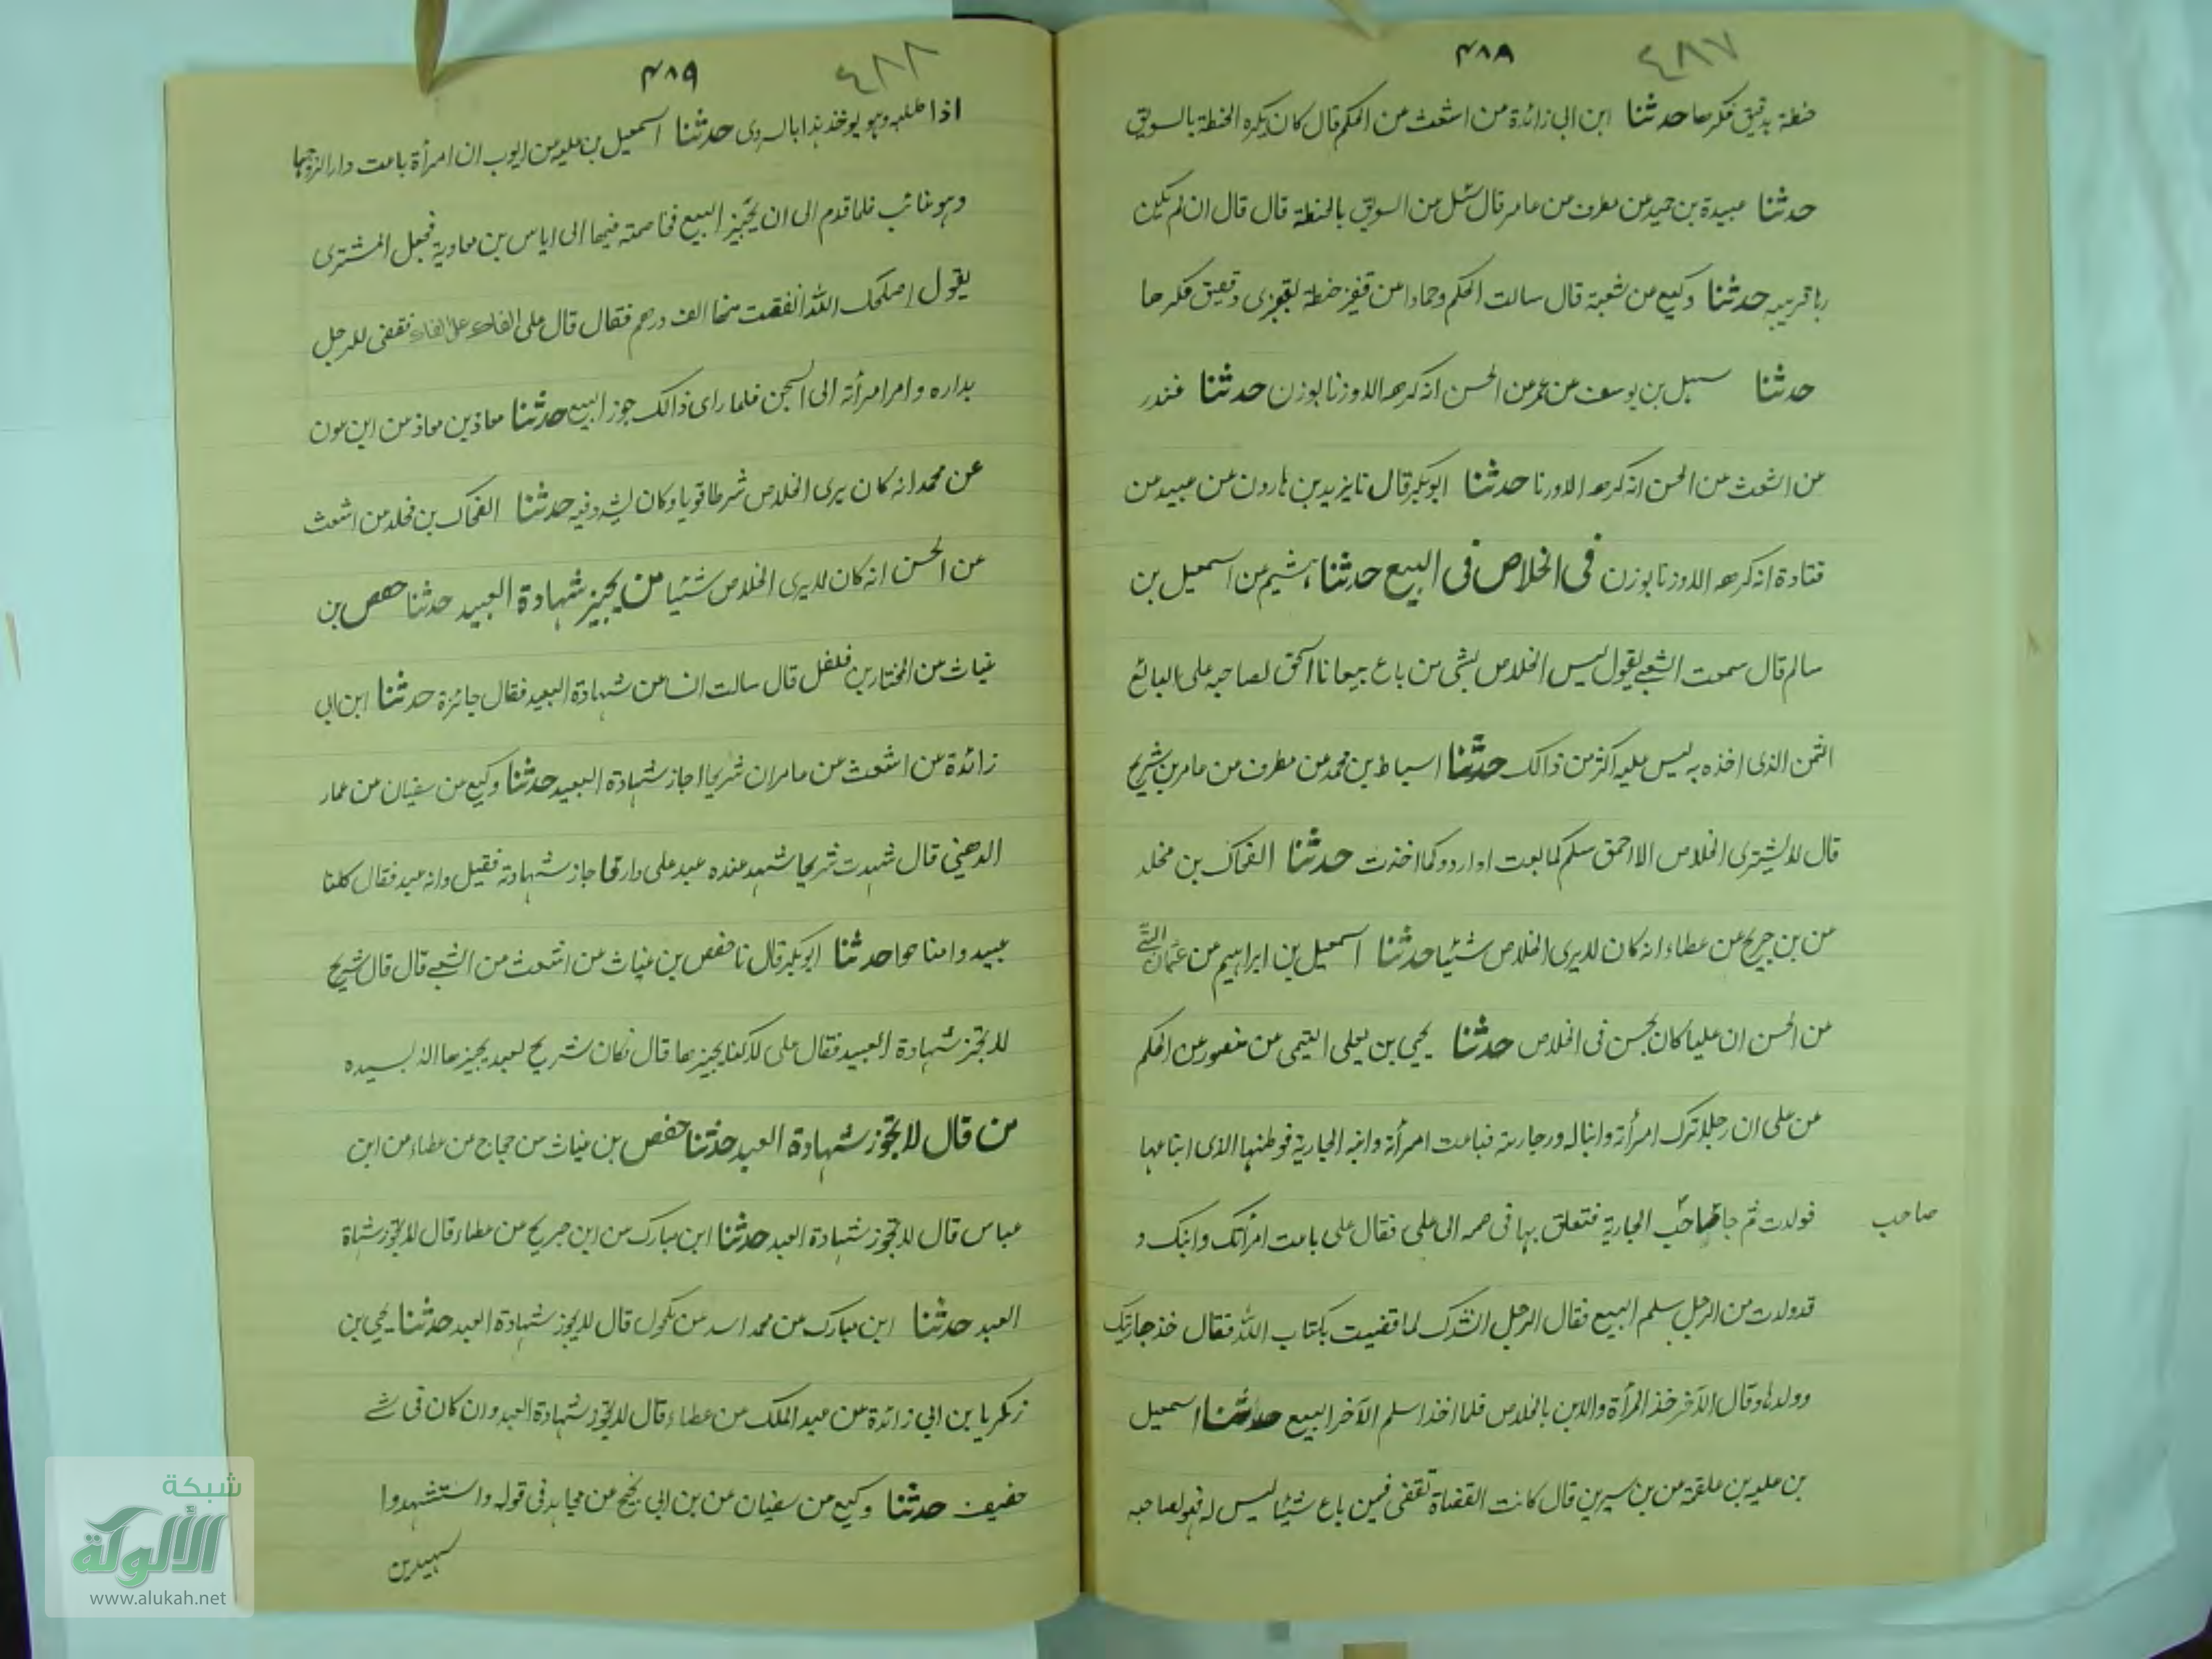 ٤٨٧
٤٨٨
حنطة بدقيق فكرهها حدثنا ابن ابى زائدة عن اشعث عن الحكم قال كان يكره الحنطة بالسويق
حدثنا عبيدة بن حميد عن مطرف عن عامر قال سئل عن السويق بالحنطة قال قال ان لم يكن
ربا قريبه حدثنا وكيع عن شعبة قال سالت الحكم وحمادا عن قفيز حنطة بقفيزى دقيق فكرها
حدثنا سهل بن يوسف عن عمر عن الحسن انه كرهه الا وزنا بوزن حدثنا غندر
عن اشعث عن الحسن انه كرهه الا وزنا حدثنا ابوبكر قال نا يزيد بن هارون عن عبيد عن
قتادة انه كرهه الا وزنا بوزن فى الخلاص فى البيع حدثنا هشيم عن اسمعيل بن
سالم قال سمعت الشعبى يقول ليس الخلاص بشى من باع بيعا فاستحق لصاحبه على البائع
الثمن الذى اخذه به ليس عليه اكثر من ذالك حدثنا اسباط بن محمد عن مطرف عن عامر بن شريح
قال لا يشترى الخلاص الا احمق سلم كما بعت او اردد كما اخذت حدثنا الضحاك بن مخلد
عن بن جريج عن عطاء انه كان لا يرى الخلاص شئيا حدثنا اسمعيل بن ابراهيم عن عثمان البتى
عن الحسن ان عليا كان يحبس فى الخلاص حدثنا يحيى بن يعلى التيمى عن منصور عن الحكم
عن على ان رجلا ترك امرأته وابنا له وجاريته فباعت امرأته وابنه الجارية فوطئها الذى ابتاعها
فولدت ثم جاء صاحب الجارية فتعلق بها فى صمه الى على فقال على باعت امرأتك وابنك و
صاحب
قد ولدت من الرجل سلم البيع فقال الرجل انشدك لما قضيت بكتاب الله فقال خذ جاريتك
وولدها وقال الآخر خذ المرأة والابن بالخلاص فلما اخذا سلم الآخر البيع حدثنا اسمعيل
بن علية بن علقمة عن بن سيرين قال كانت القضاة تقضى فيمن باع شيئا ليس له فهو لصاحبه
٤٨٨
٤٨٩
اذا طلبه وهو يوخذ هذا بالسروى حدثنا اسمعيل بن علية عن ايوب ان امرأة باعت دارا لزوجها
وهو غائب فلما قدم ابى ان يجيز البيع فخاصمته فيها الى اياس بن معاوية فجعل المشترى
يقول اصلحك الله انفقت فيها الف درهم فقال قال على الفاك على الفاك فقضى للرجل
بداره وامر امرأته الى السجن فلما راى ذالك جوز البيع حدثنا معاذ بن معاذ عن ابن عون
عن محمد انه كان يرى الخلاص شرطا قويا وكان يشدد فيه حدثنا الضحاك بن مخلد عن اشعث
عن الحسن انه كان لا يرى الخلاص شئيا من يجيز شهادة العبيد حدثنا حفص بن
غياث عن المختار بن فلفل قال سالت انسا عن شهادة العبيد فقال جائزة حدثنا ابن ابى
زائدة عن اشعث عن عامر ان شريحا اجاز شهادة العبيد حدثنا وكيع عن سفيان عن عمار
الدهنى قال شهدت شريحا شهد عنده عبد على دار فاجاز شهادته فقيل وانه عبد فقال كلنا
عبيد وامنا حوا حدثنا ابوبكر قال نا حفص بن غياث عن اشعث عن الشعبى قال قال شريح
لا يجز شهادة العبيد فقال على لاكنا يجيزها قال فكان شريح لعبد يجيزها الا لسيده
من قال لا يجوز شهادة العبد حدثنا حفص بن غياث عن حجاج عن عطاء عن ابن
عباس قال لا يجوز شهادة العبد حدثنا ابن مبارك عن ابن جريج عن عطاء قال لا يجوز شهادة
العبد حدثنا ابن مبارك عن محمد اسد عن مكحول قال لا يجوز شهادة العبد حدثنا يحيى بن
زكريا بن ابى زائدة عن عبد الملك عن عطاء قال لا يجوز شهادة العبد وان كان فى شئ
خفيف حدثنا وكيع عن سفيان عن بن ابى نجيح عن مجاهد فى قوله واستشهدوا
شهيدين
شبكة
الألوكة
www.alukah.net